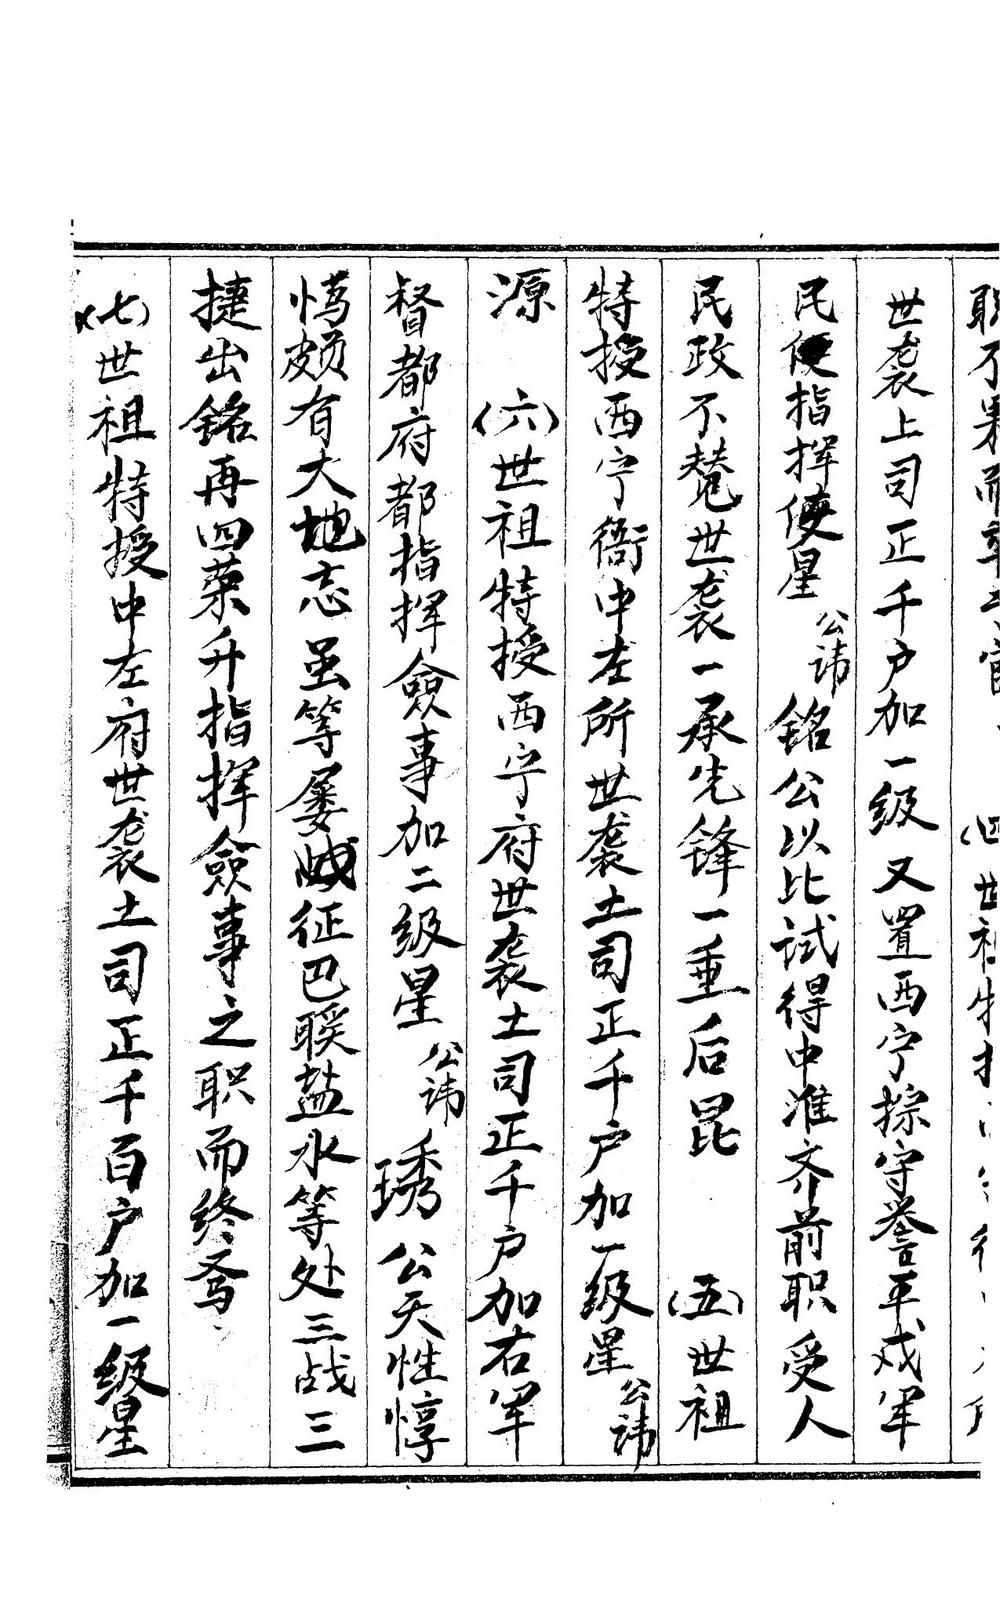 职不果而卒 (四)世祖特
世袭上司正千户加一级又置西宁探守誉平戍军
民使指挥使星公讳铭公以比试得中准齐前职受人
民政不赞世袭一承先锋一垂后昆 (五)世祖
特授西宁衙中左所世袭土司正千户加一级星公讳
源 (六)世祖特授西宁府世袭土司正千户加右军
督都府都指挥佥事加二级星公讳琇公天性惇
有大地志虽等屡征巴聫盐水等处三战三
捷出铭再四荣升指挥佥事之职而终焉
(七)世祖特授中左府世袭土司正千百户加一级星